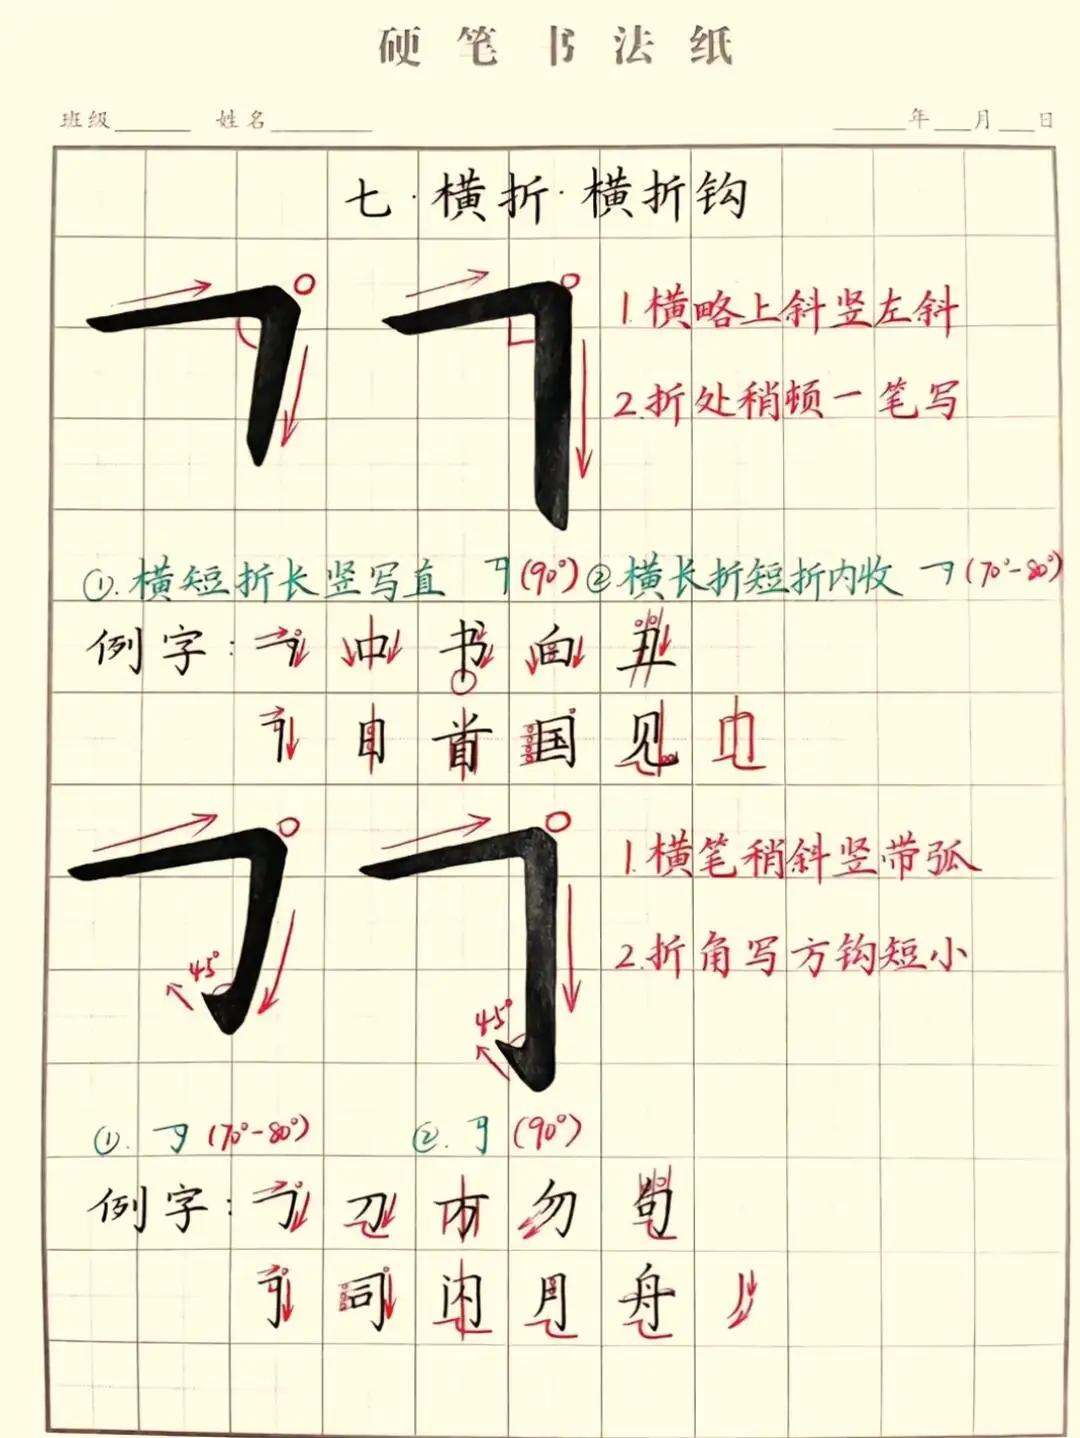 硬笔书法纸
班级 姓名 年 月 日
七·横折·横折钩
1.横略上斜竖左斜
2.折处稍顿一笔写
①.横短折长竖写直 (90°) ②横长折短折内收 (70°-80°)
例字: 中 书 向 丑
目 首 国 见
1.横笔稍斜竖带弧
45°
2.折角写方钩短小
45°
①. (70°-80°) ②. (90°)
例字: 刀 方 勿 句
司 闲 月 舟